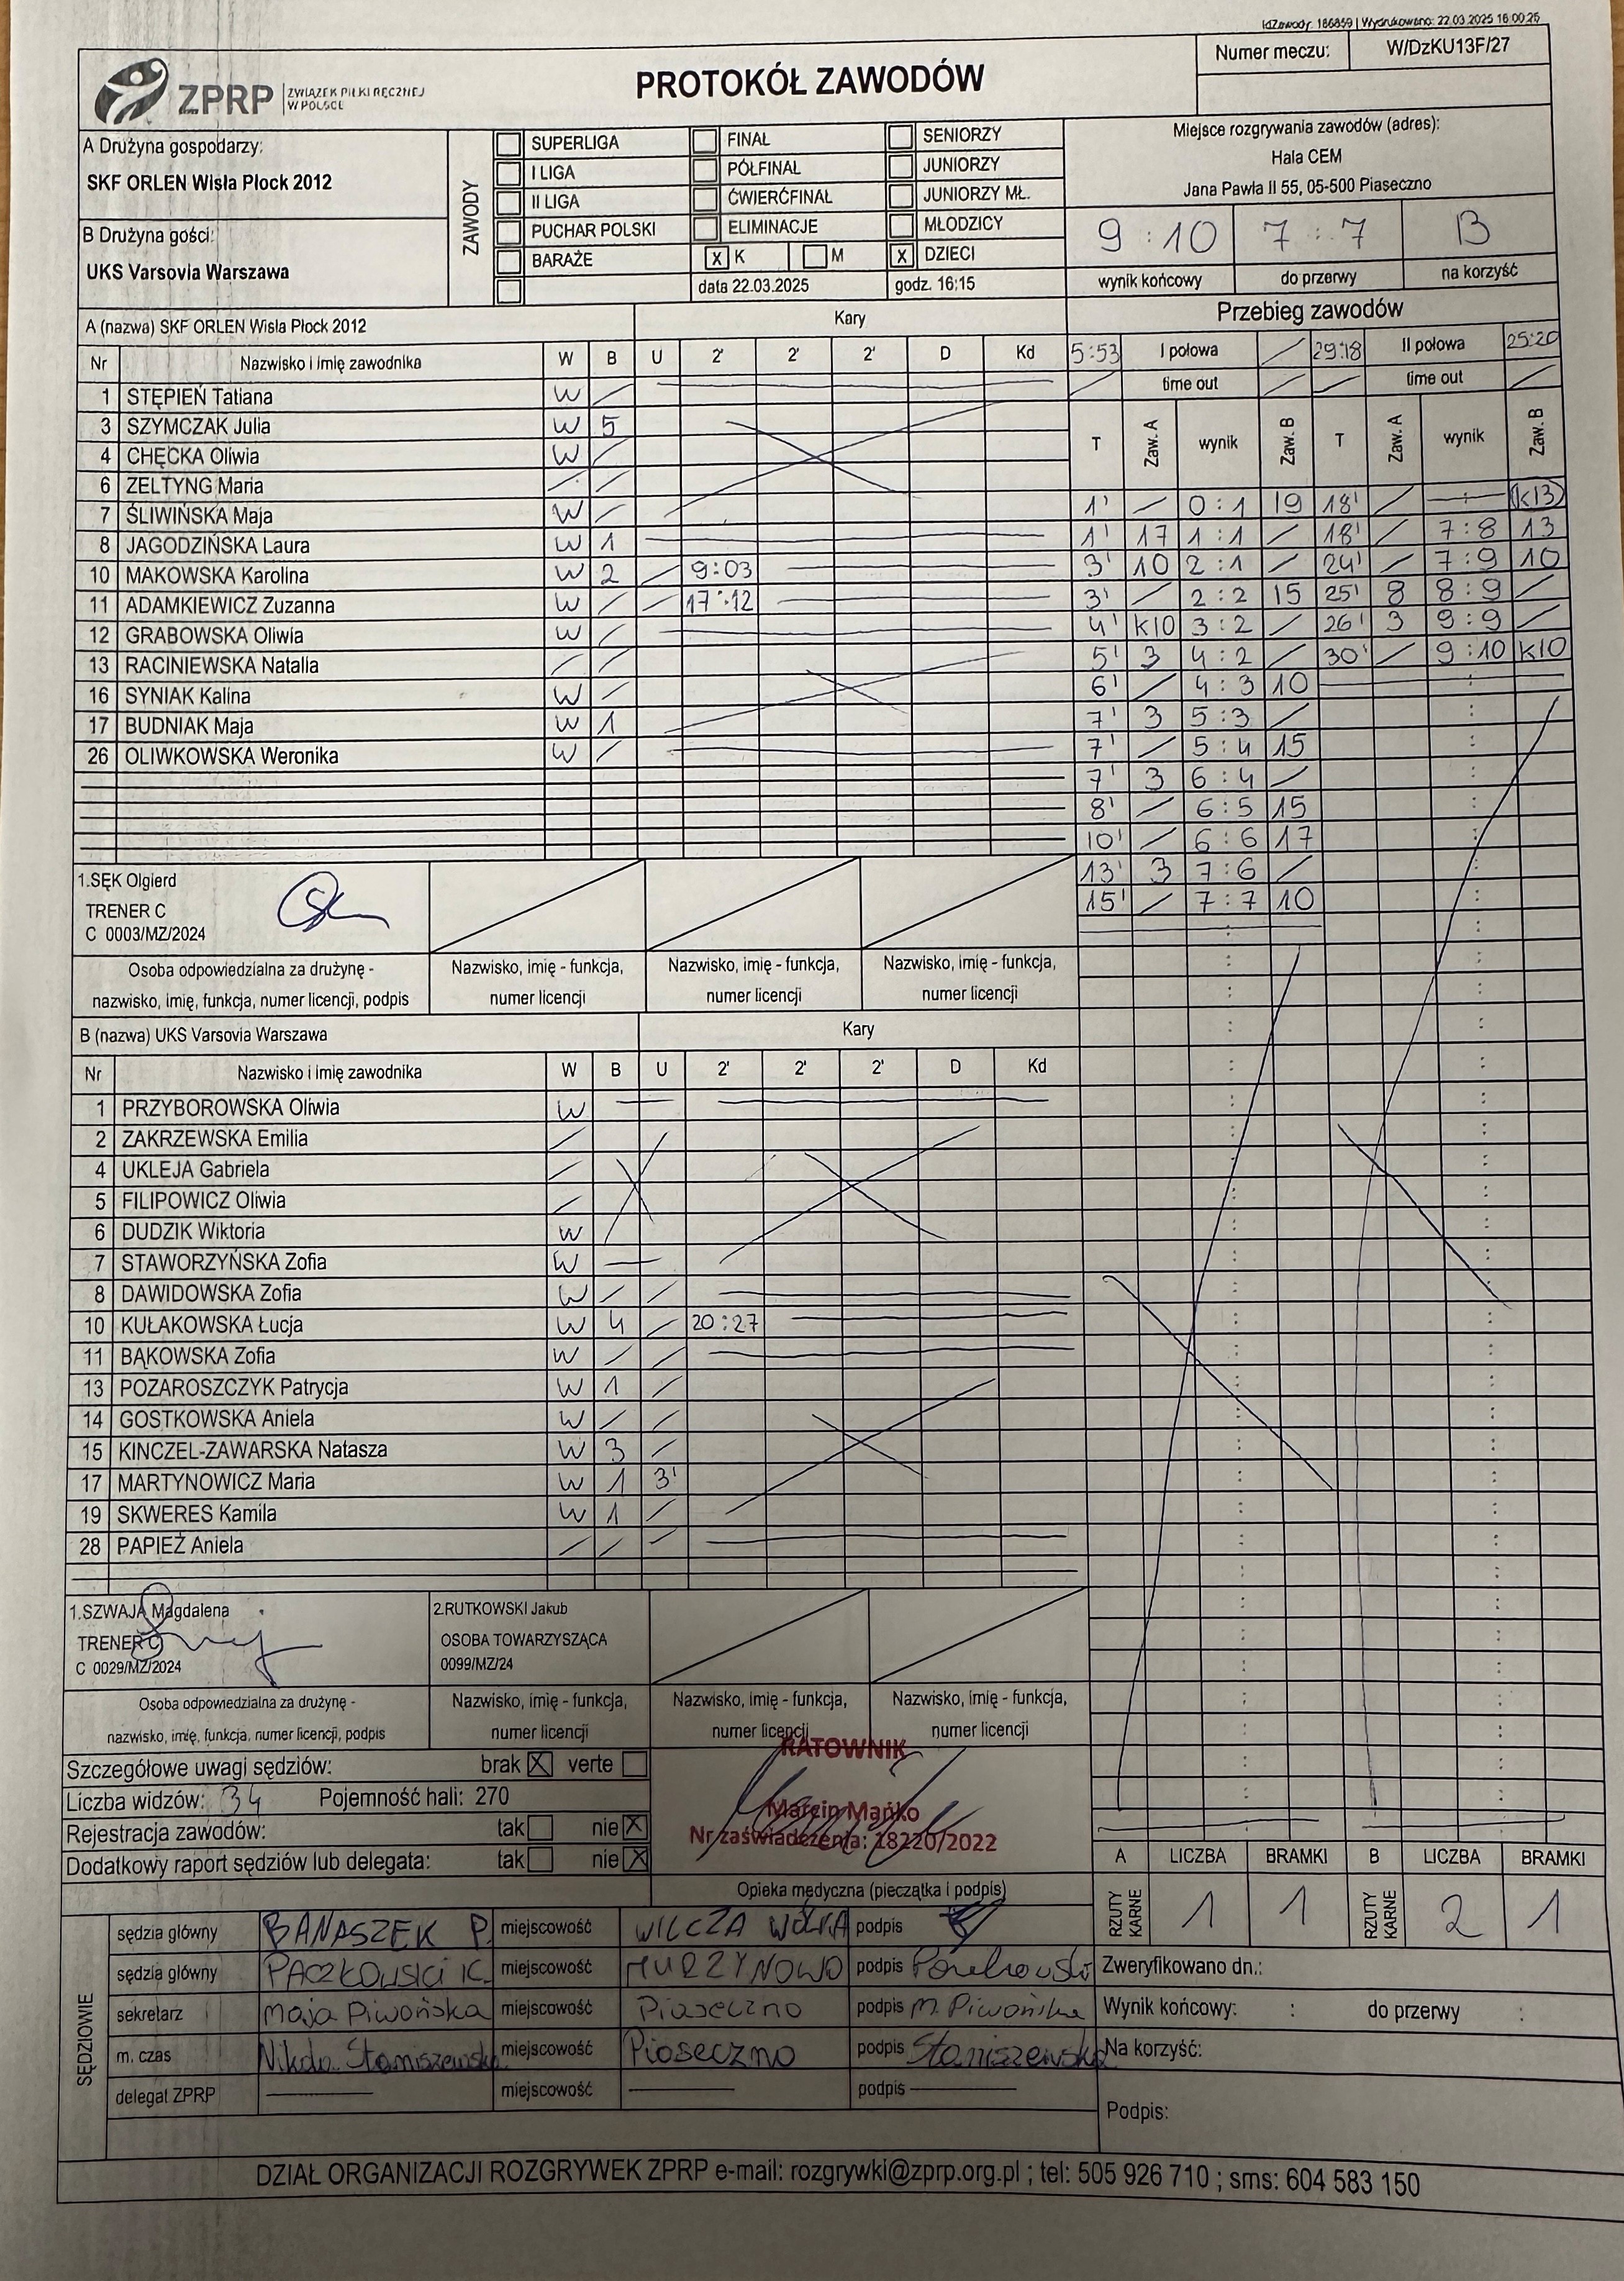 IdZawody: 186859 | Wydrukowano: 22.03.2025 16:00:25
Numer meczu: W/DzKU13F/27
ZPRP ZWIĄZEK PIŁKI RĘCZNEJ W POLSCE
PROTOKÓŁ ZAWODÓW
A Drużyna gospodarzy:
SKF ORLEN Wisła Płock 2012
B Drużyna gości:
UKS Varsovia Warszawa
ZAWODY
SUPERLIGA FINAŁ SENIORZY
I LIGA PÓŁFINAŁ JUNIORZY
II LIGA ĆWIERĆFINAŁ JUNIORZY MŁ.
PUCHAR POLSKI ELIMINACJE MŁODZICY
BARAŻE X K M X DZIECI
data 22.03.2025 godz. 16:15
Miejsce rozgrywania zawodów (adres):
Hala CEM
Jana Pawła II 55, 05-500 Piaseczno
9 : 10 7 : 7 B
wynik końcowy do przerwy na korzyść
A (nazwa) SKF ORLEN Wisła Płock 2012 Kary
Nr Nazwisko i imię zawodnika W B U 2' 2' 2' D Kd
1 STĘPIEŃ Tatiana W /
3 SZYMCZAK Julia W 5
4 CHĘCKA Oliwia W /
6 ZELTYNG Maria / /
7 ŚLIWIŃSKA Maja W /
8 JAGODZIŃSKA Laura W 1
10 MAKOWSKA Karolina W 2 / 9:03
11 ADAMKIEWICZ Zuzanna W / / 17:12
12 GRABOWSKA Oliwia W /
13 RACINIEWSKA Natalia / /
16 SYNIAK Kalina W /
17 BUDNIAK Maja W 1
26 OLIWKOWSKA Weronika W /
1.SĘK Olgierd
TRENER C
C 0003/MZ/2024
Osoba odpowiedzialna za drużynę - nazwisko, imię, funkcja, numer licencji, podpis
Nazwisko, imię - funkcja, numer licencji
Nazwisko, imię - funkcja, numer licencji
Nazwisko, imię - funkcja, numer licencji
B (nazwa) UKS Varsovia Warszawa Kary
Nr Nazwisko i imię zawodnika W B U 2' 2' 2' D Kd
1 PRZYBOROWSKA Oliwia W
2 ZAKRZEWSKA Emilia /
4 UKLEJA Gabriela /
5 FILIPOWICZ Oliwia /
6 DUDZIK Wiktoria W
7 STAWORZYŃSKA Zofia W
8 DAWIDOWSKA Zofia W / /
10 KUŁAKOWSKA Łucja W 4 / 20:27
11 BĄKOWSKA Zofia W / /
13 POZAROSZCZYK Patrycja W 1 /
14 GOSTKOWSKA Aniela W / /
15 KINCZEL-ZAWARSKA Natasza W 3 /
17 MARTYNOWICZ Maria W 1 3'
19 SKWERES Kamila W 1 /
28 PAPIEŻ Aniela / / /
1.SZWAJA Magdalena
TRENER C
C 0029/MZ/2024
2.RUTKOWSKI Jakub
OSOBA TOWARZYSZĄCA
0099/MZ/24
Osoba odpowiedzialna za drużynę - nazwisko, imię, funkcja, numer licencji, podpis
Nazwisko, imię - funkcja, numer licencji
Nazwisko, imię - funkcja, numer licencji
Nazwisko, imię - funkcja, numer licencji
Przebieg zawodów
5:53 I połowa / 29:18 II połowa 25:20
/ time out / / time out /
T Zaw. A wynik Zaw. B T Zaw. A wynik Zaw. B
1' / 0 : 1 19 18' / : K13
1' 17 1 : 1 / 18' / 7 : 8 13
3' 10 2 : 1 / 24' / 7 : 9 10
3' / 2 : 2 15 25' 8 8 : 9 /
4' K10 3 : 2 / 26' 3 9 : 9 /
5' 3 4 : 2 / 30' / 9 : 10 K10
6' / 4 : 3 10
7' 3 5 : 3 /
7' / 5 : 4 15
7' 3 6 : 4 /
8' / 6 : 5 15
10' / 6 : 6 17
13' 3 7 : 6 /
15' / 7 : 7 10
Szczegółowe uwagi sędziów: brak X verte
Liczba widzów: 34 Pojemność hali: 270
Rejestracja zawodów: tak nie X
Dodatkowy raport sędziów lub delegata: tak nie X
RATOWNIK
Marcin Mańko
Nr zaświadczenia: 18220/2022
Opieka medyczna (pieczątka i podpis)
A LICZBA BRAMKI B LICZBA BRAMKI
RZUTY KARNE 1 1 RZUTY KARNE 2 1
SĘDZIOWIE
sędzia główny BANASZEK P. miejscowość WILCZA WÓLKA podpis
sędzia główny PACZKOWSKI K. miejscowość MURZYNOWO podpis Paczkowski
sekretarz Maja Piwońska miejscowość Piaseczno podpis M. Piwońska
m. czas Nikola Staniszewska miejscowość Piaseczno podpis Staniszewska
delegat ZPRP miejscowość podpis
Zweryfikowano dn.:
Wynik końcowy: : do przerwy :
Na korzyść:
Podpis:
DZIAŁ ORGANIZACJI ROZGRYWEK ZPRP e-mail: rozgrywki@zprp.org.pl ; tel: 505 926 710 ; sms: 604 583 150